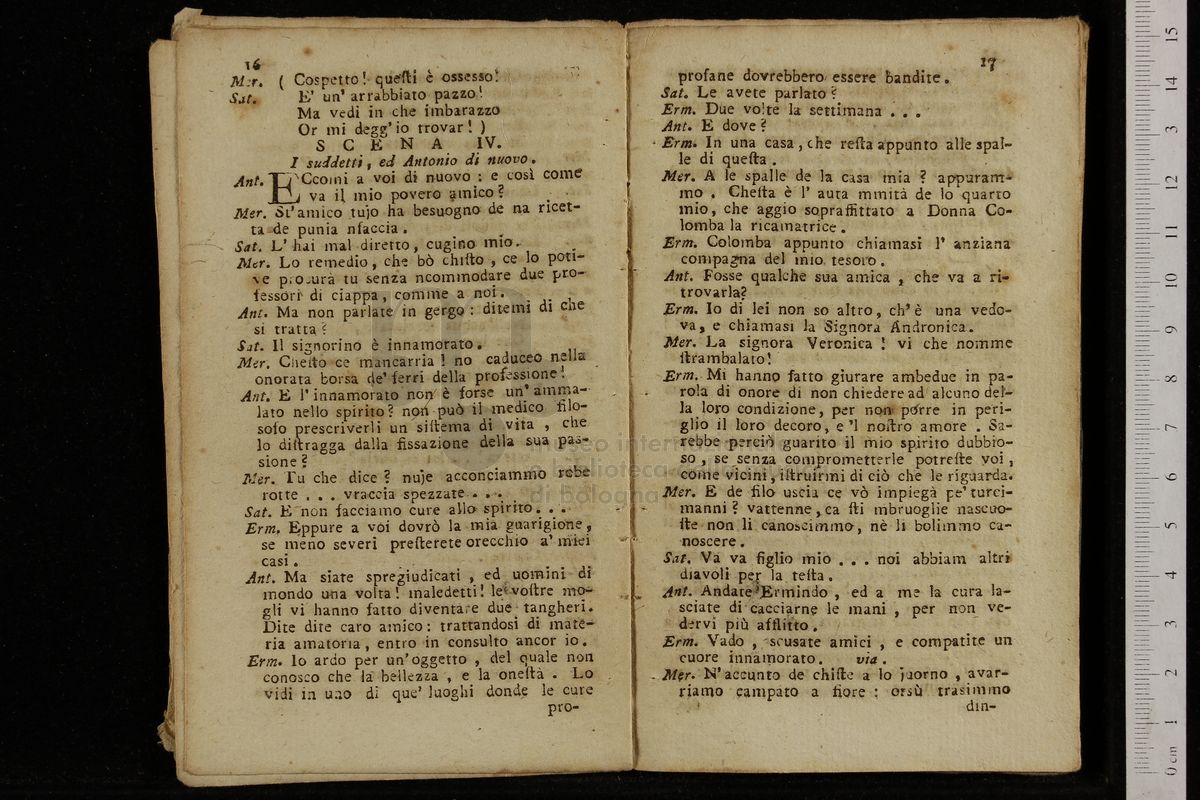 16
Mer. ( Cospetto! questi è ossesso!
Sat. E' un' arrabbiato pazzo!
Ma vedi in che imbarazzo
Or mi degg' io trovar! )
SCENA IV.
I suddetti, ed Antonio di nuovo.
Ant. ECcomi a voi di nuovo : e così come
va il mio povero amico?
Mer. St' amico tujo ha besuogno de na ricet-
ta de punia nfaccia.
Sat. L' hai mal diretto, cugino mio.
Mer. Lo remedio, che bò chisto, ce lo poti-
ve procurà tu senza ncommodare due pro-
fessori di ciappa, comme a noi.
Ant. Ma non parlate in gergo : ditemi di che
si tratta?
Sat. Il signorino è innamorato.
Mer. Chesto ce mancarria! no caduceo nella
onorata borsa de' ferri della professione!
Ant. E l' innamorato non è forse un' amma-
lato nello spirito? non può il medico filo-
sofo prescriverli un sistema di vita, che
lo distragga dalla fissazione della sua pas-
sione?
Mer. Tu che dice? nuje acconciammo robe
rotte ... vraccia spezzate ...
Sat. E non facciamo cure allo spirito...
Erm. Eppure a voi dovrò la mia guarigione,
se meno severi presterete orecchio a' miei
casi.
Ant. Ma siate spregiudicati, ed uomini di
mondo una volta! maledetti! le vostre mo-
gli vi hanno fatto diventare due tangheri.
Dite dite caro amico: trattandosi di mate-
ria amatoria, entro in consulto ancor io.
Erm. Io ardo per un' oggetto, del quale non
conosco che la bellezza, e la onestà. Lo
vidi in uno di que' luoghi donde le cure
pro-
17
profane dovrebbero essere bandite.
Sat. Le avete parlato?
Erm. Due volte la settimana ...
Ant. E dove?
Erm. In una casa, che resta appunto alle spal-
le di questa.
Mer. A le spalle de la casa mia? appuram-
mo. Chesta è l' auta mmità de lo quarto
mio, che aggio sopraffittato a Donna Co-
lomba la ricamatrice.
Erm. Colomba appunto chiamasi l' anziana
compagna del mio tesoro.
Ant. Fosse qualche sua amica, che va a ri-
trovarla?
Erm. Io di lei non so altro, ch' è una vedo-
va, e chiamasi la Signora Andronica.
Mer. La signora Veronica! vi che nomme
strambalato!
Erm. Mi hanno fatto giurare ambedue in pa-
rola di onore di non chiedere ad alcuno del-
la loro condizione, per non porre in peri-
glio il loro decoro, e 'l nostro amore. Sa-
rebbe perciò guarito il mio spirito dubbio-
so, se senza comprometterle potreste voi,
come vicini, istruirmi di ciò che le riguarda.
Mer. E de filo uscia ce vò impiegà pe' turci-
manni? vattenne, ca sti mbruoglie nascuo-
ste non li canoscimmo, nè li bolimmo ca-
noscere.
Sat. Va va figlio mio ... noi abbiam altri
diavoli per la testa.
Ant. Andate Ermindo, ed a me la cura la-
sciate di cacciarne le mani, per non ve-
dervi più afflitto.
Erm. Vado, scusate amici, e compatite un
cuore innamorato. via.
Mer. N' accunto de chiste a lo juorno, avar-
riamo campato a fiore : orsù trasimmo
din-
museo internazionale
e biblioteca della musica
di bologna
15
14
13
12
11
10
9
8
7
6
5
4
3
2
1
0 cm